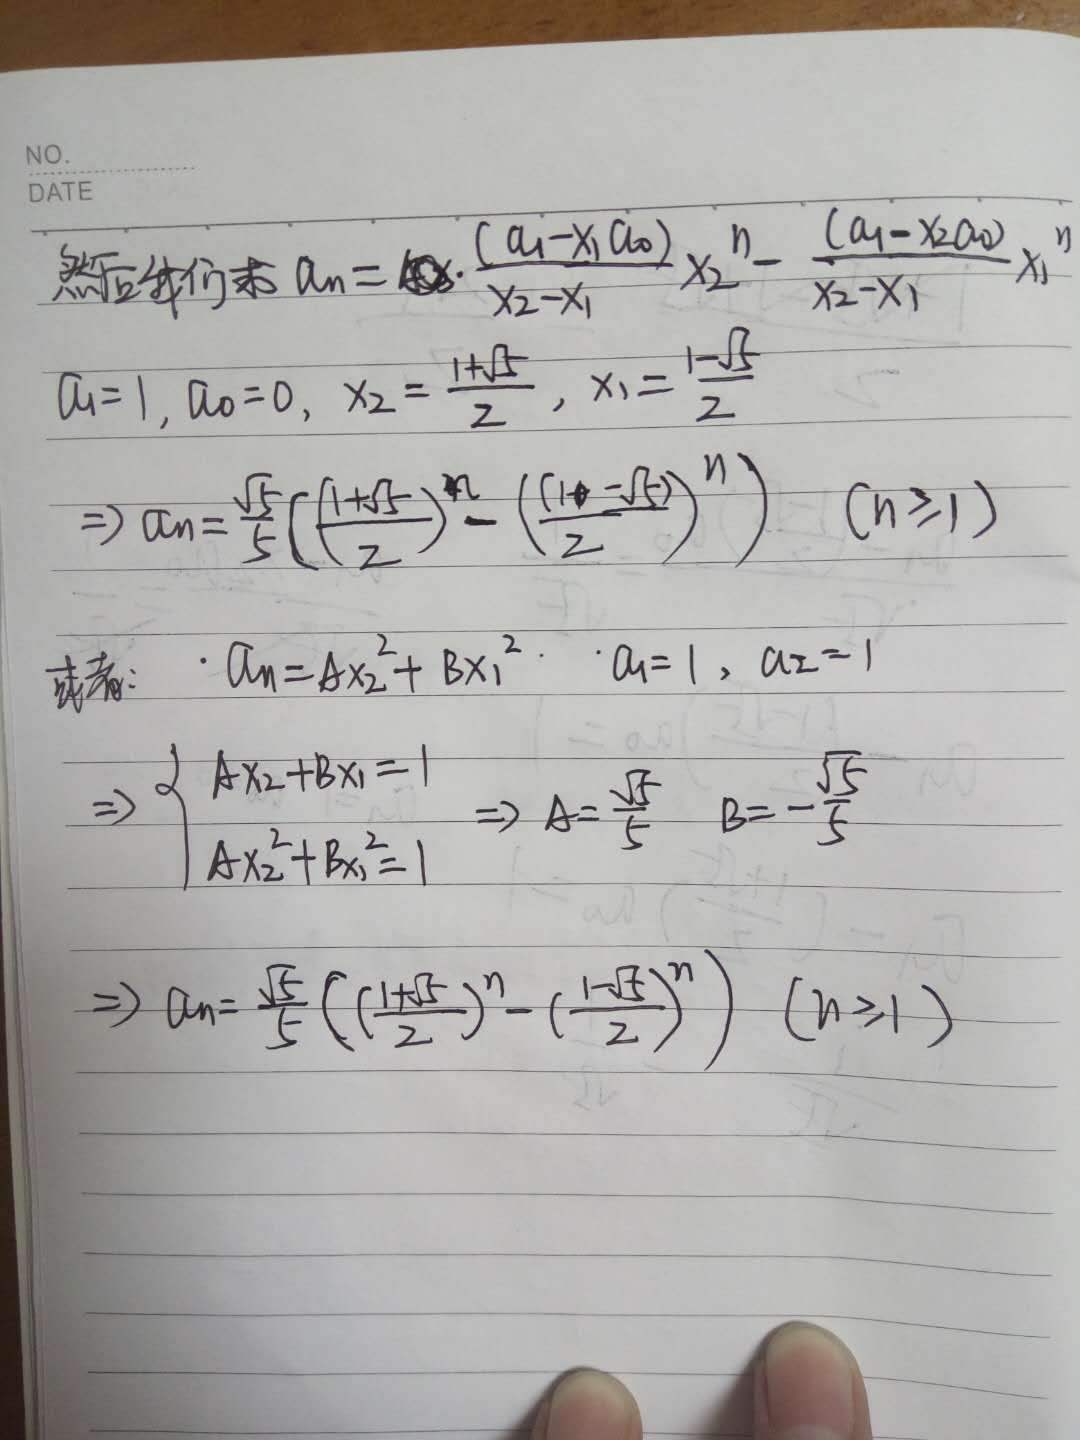 NO.
DATE
然后我们求 aₙ = (a₁-x₁a₀)/(x₂-x₁) x₂ⁿ - (a₁-x₂a₀)/(x₂-x₁) x₁ⁿ
a₁=1, a₀=0, x₂=(1+√5)/2, x₁=(1-√5)/2
⇒ aₙ=√5/5(((1+√5)/2)ⁿ-((1-√5)/2)ⁿ) (n≥1)
或者: aₙ=Ax₂²+Bx₁² a₁=1, a₂=1
⇒ { Ax₂+Bx₁=1
Ax₂²+Bx₁²=1 ⇒ A=√5/5 B=-√5/5
⇒ aₙ=√5/5(((1+√5)/2)ⁿ-((1-√5)/2)ⁿ) (n≥1)